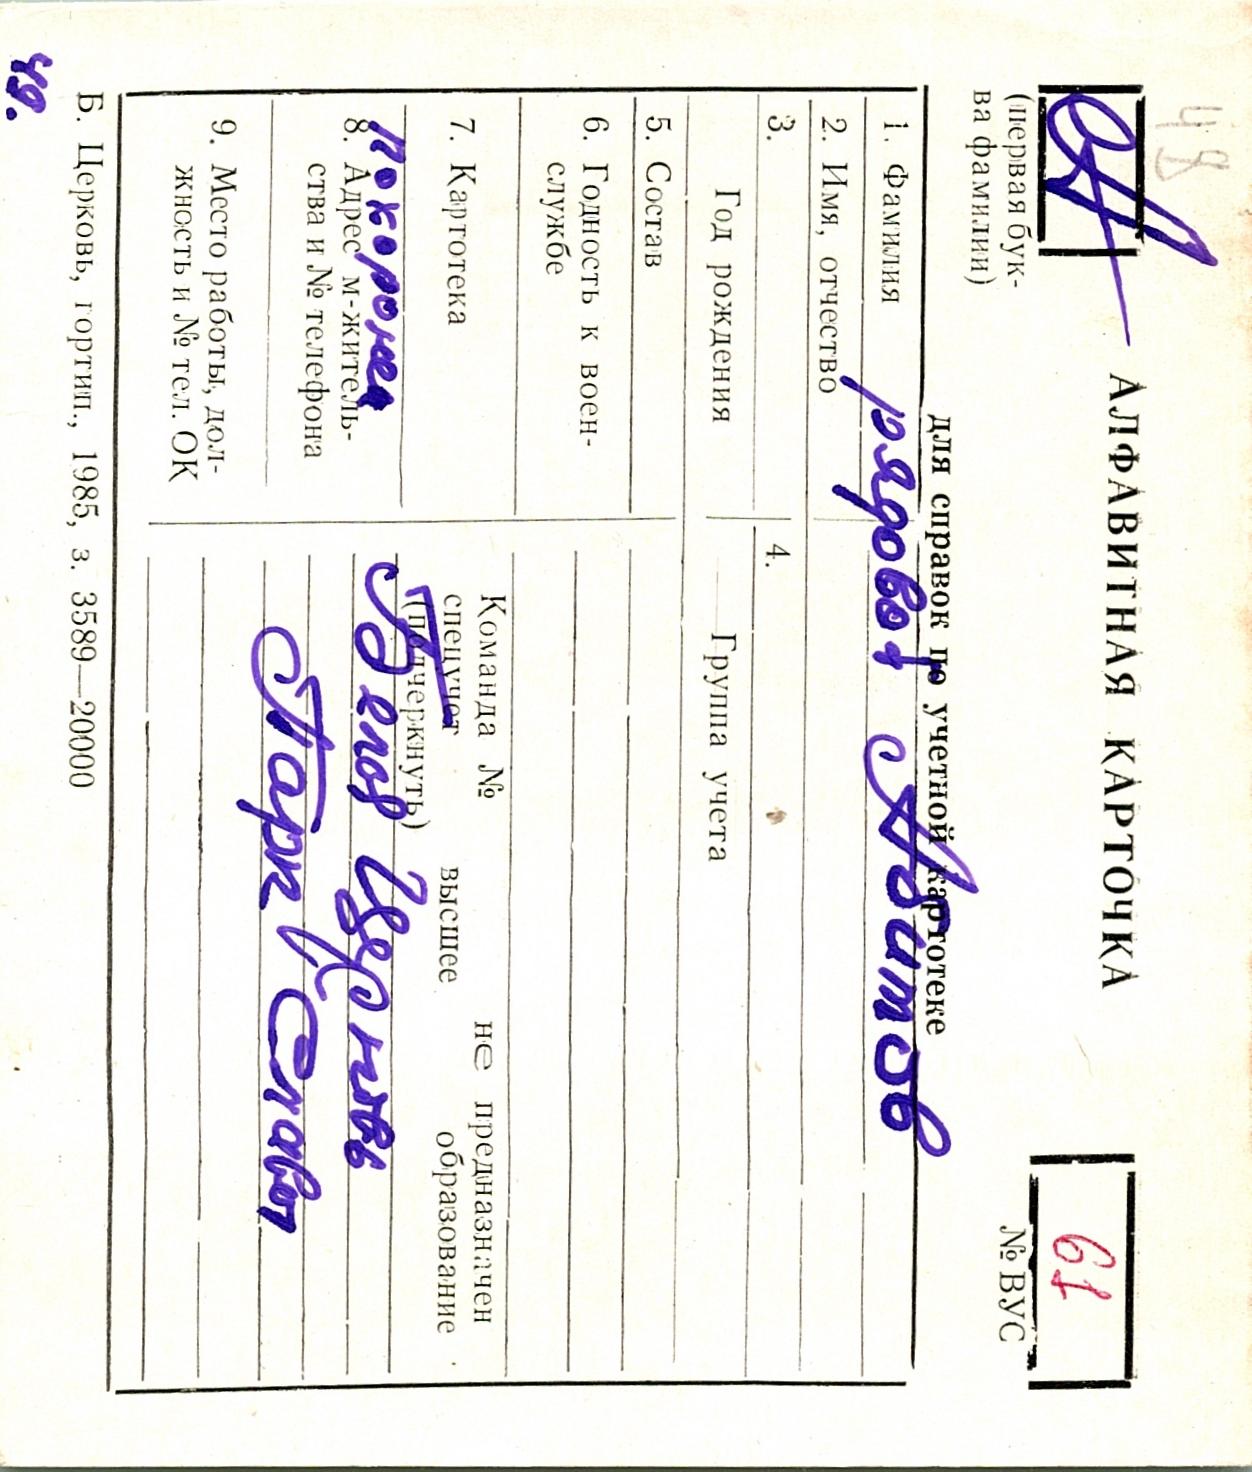 48
А
АЛФАВИТНАЯ КАРТОЧКА
61
(первая бук-
ва фамилии)
№ ВУС
для справок по учетной картотеке
1. Фамилия
рядовой Абитов
2. Имя, отчество
3.
4.
Год рождения
Группа учета
5. Состав
6. Годность к воен-
службе
7. Картотека
Команда №
не предназначен
спецучет высшее образование
(подчеркнуть)
похоронен
8. Адрес м-житель-
ства и № телефона
г. Белая Церковь
Парк Славы
9. Место работы, дол-
жность и № тел. ОК
Б. Церковь, гортип., 1985, з. 3589—20000
49.